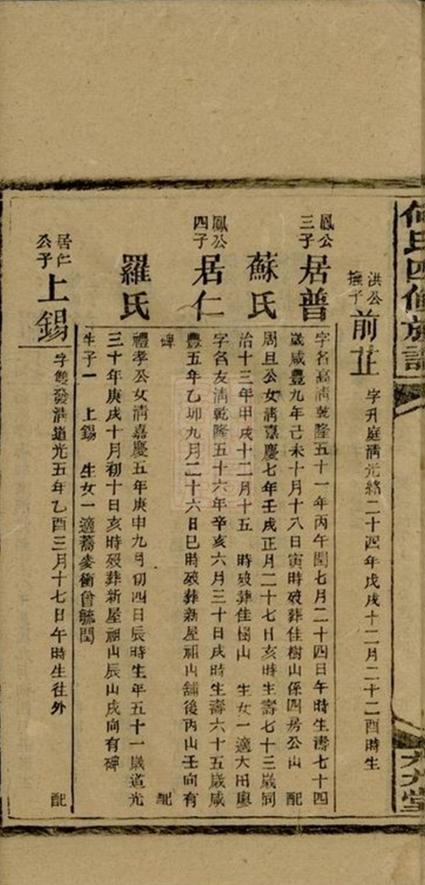 何氏四修族譜
六堂
洪公撫子 前芷 字升庭清光緒二十四年戊戌十二月二十二酉時生
鳳公三子 居普 字名高清乾隆五十一年丙午閏七月二十四日午時生壽七十四
歲咸豐九年己未十月十八日寅時歿葬佳樹山係四房公山 配
蘇氏 周旦公女清嘉慶七年壬戌正月二十七日亥時生壽七十三歲同
治十三年甲戌十二月十五 時歿葬佳樹山 生女一適大田廖
鳳公四子 居仁 字名友清乾隆五十六年辛亥六月三十日戌時生壽六十五歲咸
豐五年乙卯九月二十六日巳時歿葬新屋祖山舖後丙山壬向有
碑 配
羅氏 禮孝公女清嘉慶五年庚申九月初四日辰時生年五十一歲道光
三十年庚戌十月初十日亥時歿葬新屋祖山辰山戌向有碑
生子一 上錫 生女一適蕎麥衝曾毓閏
居仁公子 上錫 字雙發清道光五年乙酉三月十七日午時生往外 配